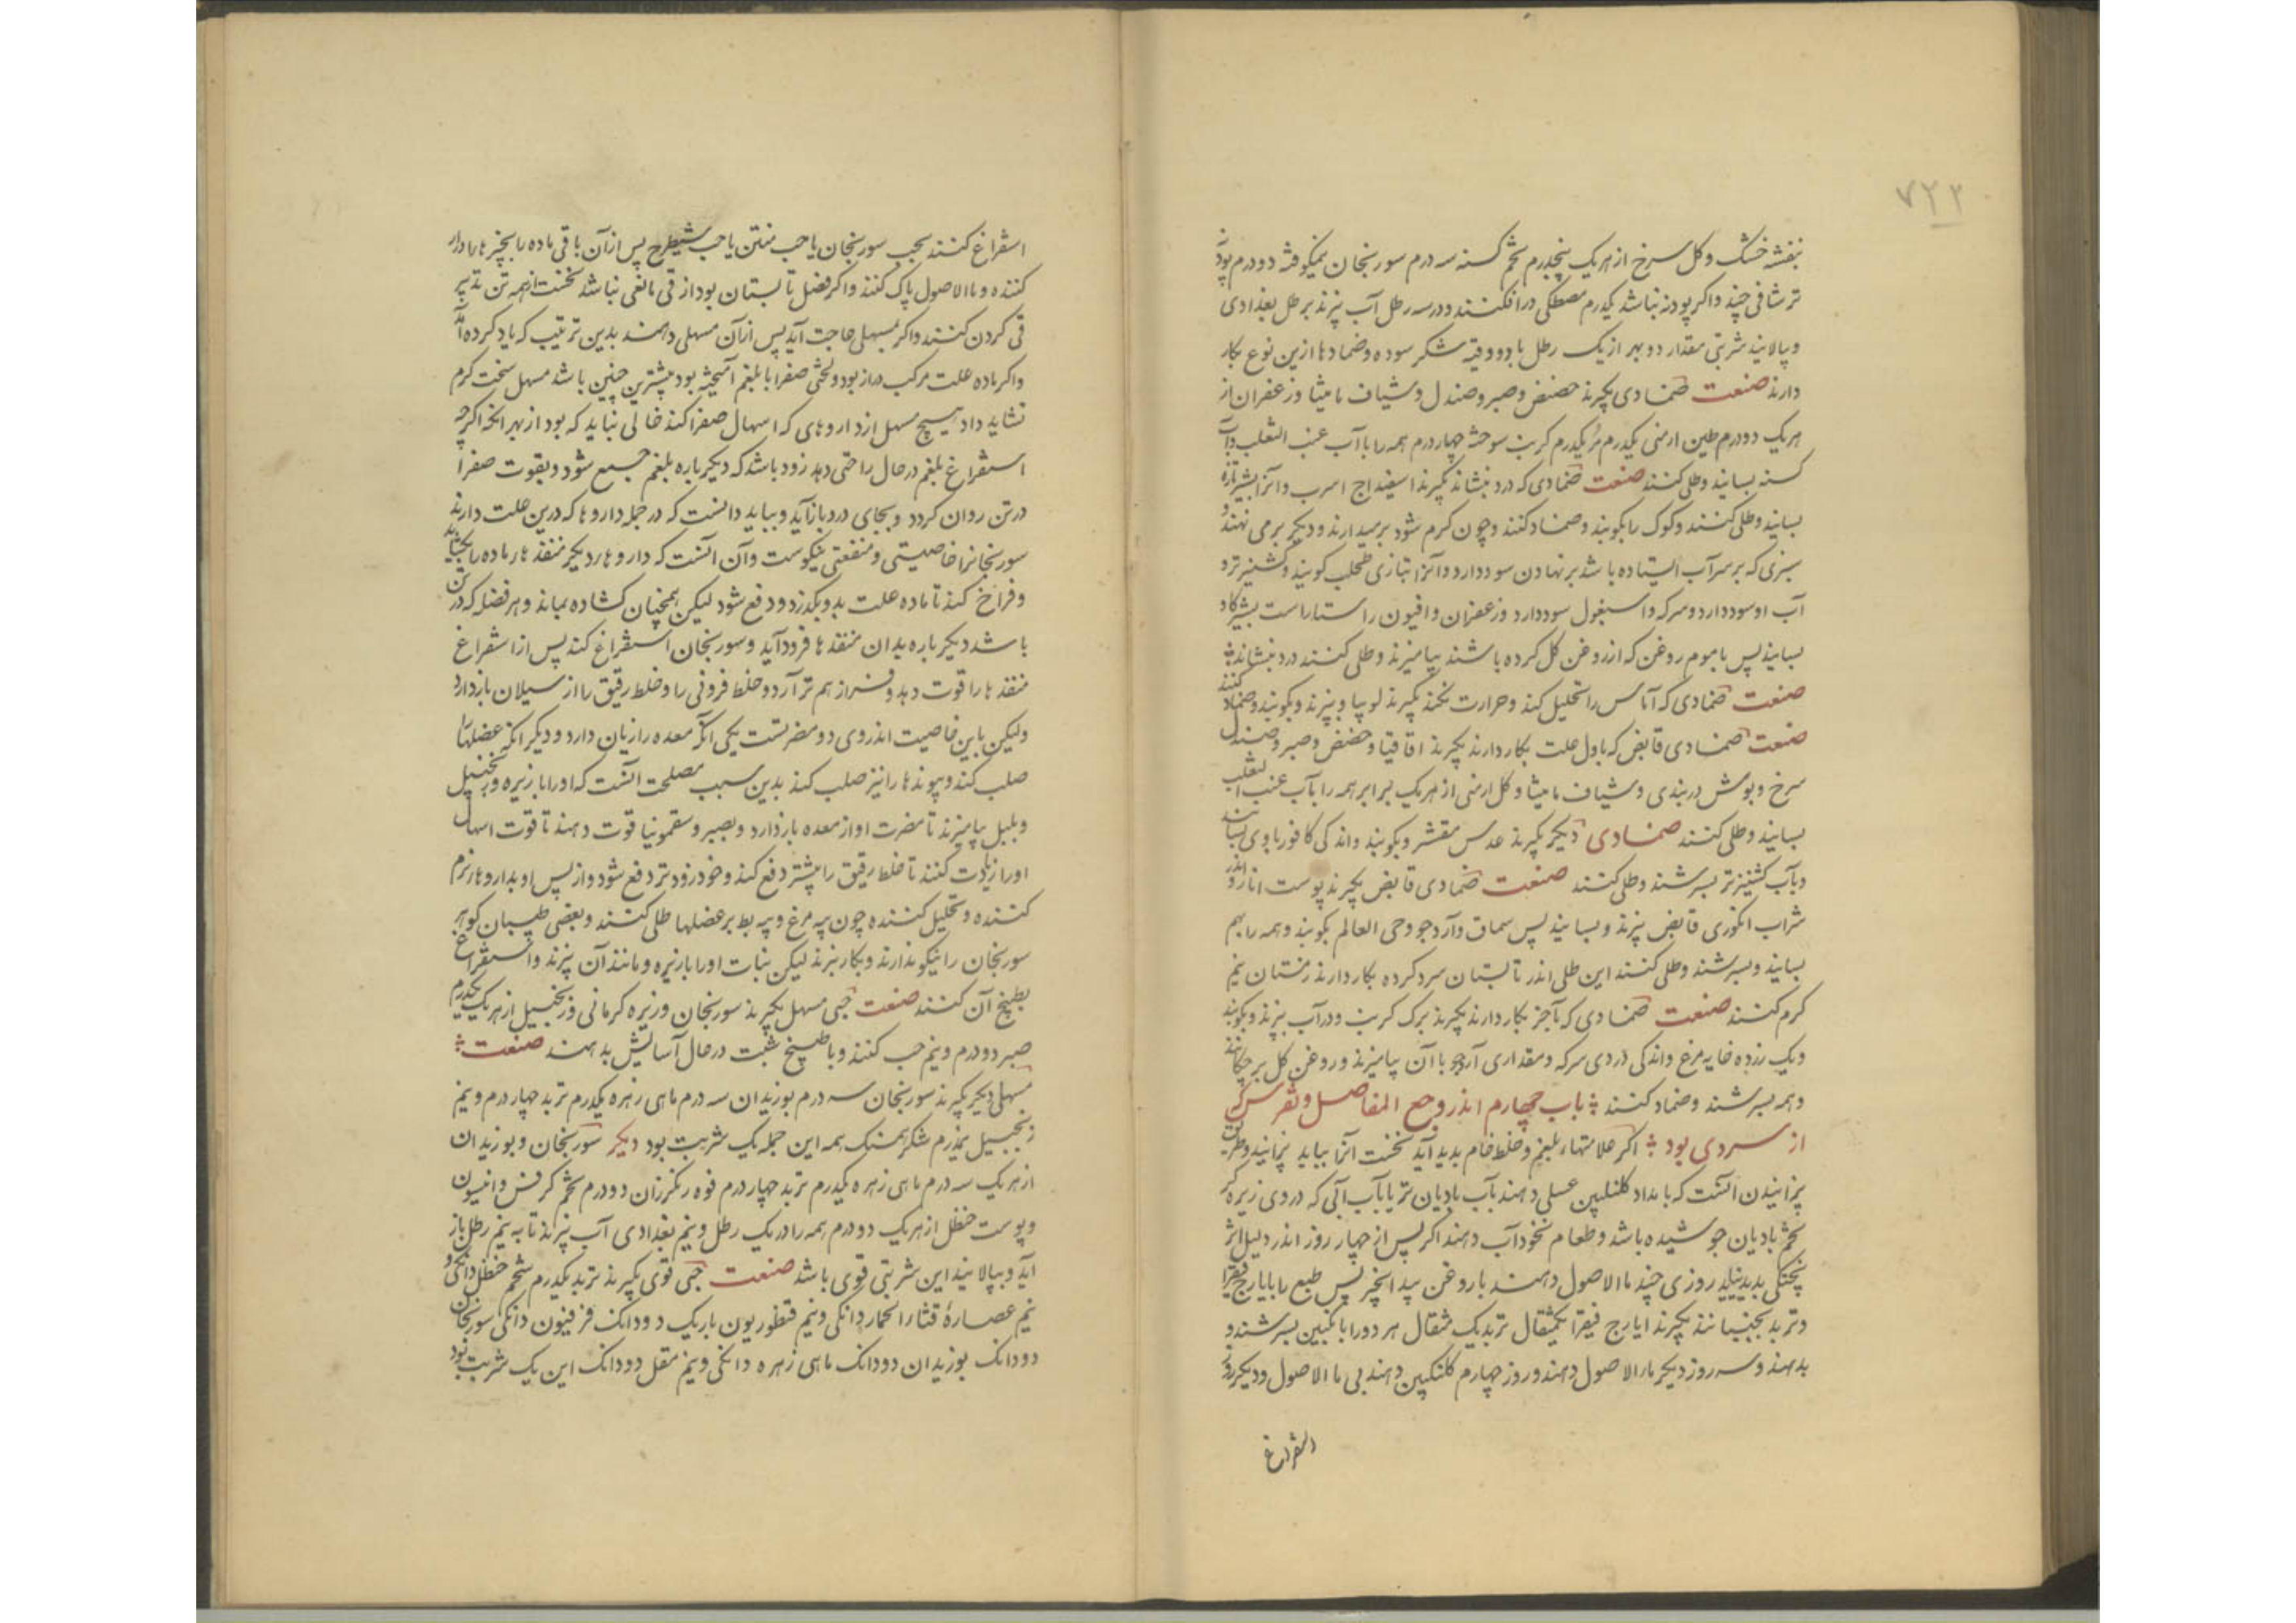 ۷۲۲
بنفشه خشک و کل سرخ از هر یک پنجدرم تخم کسنه سه درم سورنجان نیمکوفته دو درم پودنه
تر شاخی چند و اکر پودنه نباشد یکدرم مصطکی درافکنند و در سه رطل آب بپزند برطل بغدادی
و بپالایند شربتی مقدار دو بهر از یک رطل با دو وقیه شکر سوده و ضمادها ازین نوع بکار
دارند صنعت ضمادی بکیرند حضض و صبر و صندل و شیاف مامیثا و زعفران از
هر یک دو درم طین ارمنی یکدرم مر یکدرم کرنب سوخته چهار درم همه را با آب عنب الثعلب و آب
کسنه بسایند و طلی کنند صنعت ضمادی که درد بنشاند بکیرند اسفیداج اسرب و انرا بشیر تازه
بسایند و طلی کنند و کوک را بکوبند و ضماد کنند و چون کرم شود برمیدارند و دیکر برمی نهند و
سبزی که بر سر آب ایستاده باشد برنهادن سود دارد و انرا بتازی طحلب کویند و کشنیز تر و
آب او سود دارد و سرکه و اسبغول سود دارد و زعفران و افیون راستاراست بشیر کاو
بسایند پس با موم روغن که از روغن کل کرده باشند بیامیزند و طلی کنند درد بنشاند
صنعت ضمادی که آماس را تحلیل کند و حرارت نکند بکیرند لوبیا و بپزند و بکوبند و ضماد کنند
صنعت ضمادی قابض که باول علت بکار دارند بکیرند اقاقیا و حضض و صبر و صندل
سرخ و بوش دربندی و شیاف مامیثا و کل ارمنی از هر یک برابر همه را بآب عنب الثعلب
بسایند و طلی کنند ضمادی دیکر بکیرند عدس مقشر و بکوبند و اندکی کافور با وی بسایند
و بآب کشنیز تر بسرشند و طلی کنند صنعت ضمادی قابض بکیرند پوست انار و اندر
شراب انکوری قابض بپزند و بسایند پس سماق و آرد جو و حی العالم بکوبند و همه را بهم
بسایند و بسرشند و طلی کنند این طلی اندر تابستان سرد کرده بکار دارند زمستان نیم
کرم کنند صنعت ضمادی که بآخر بکار دارند بکیرند برک کرنب و در آب بپزند و بکوبند
و یک زرده خایه مرغ و اندکی دردی سرکه و مقداری آرد جو با آن بیامیزند و روغن کل بر چکانند
و همه بسرشند و ضماد کنند باب چهارم اندر وجع المفاصل و نقرس که
از سردی بود اکر علامتهاء بلغم و خلط خام بدید آید نخست آنرا بباید پزانید و طریق
پزانیدن انست که بامداد کلنکبین عسلی دهند بآب بادیان تر یا بآب آبی که در وی زیره کر
تخم بادیان جوشیده باشد و طعام نخودآب دهند اکر پس از چهار روز اندر دلیل اثر
پختکی بدید نیاید روزی چند ماالاصول دهند با روغن بید انجیر پس طبع را بایارج فیقرا
و تربد بجنبانند بکیرند ایارج فیقرا یکمثقال تربد یک مثقال هر دو را بانکبین بسرشند و
بدهند و سه روز دیکر ماء الاصول دهند و روز چهارم کلنکبین دهند بی ماالاصول و دیکر روز
استفراغ
استفراغ کنند بحب سورنجان یا حب منتن یا حب شیطرج پس ازآن باقی ماده را بچیزهاء ادرار
کننده و ماالاصول پاک کنند و اکر فصل تابستان بود از قی مانعی نباشد نخست از همه تن تدبیر
قی کردن کنند و اکر بمسهلی حاجت آید پس ازآن مسهلی دهند بدین ترتیب که یاد کرده آمد
و اکر ماده علت مرکب دراز بود و لختی صفرا با بلغم آمیخته بود بیشترین چنین باشد مسهل سخت کرم
نشاید داد هیچ مسهل از داروهای که اسهال صفرا کند خالی نباید که بود از بهر انکه اکرچه
استفراغ بلغم در حال راحتی دهد زود باشد که دیکرباره بلغم جمع شود و بقوت صفرا
در تن روان کردد و بجای درد بازآید و بباید دانست که در جمله داروها که درین علت دارند
سورنجانرا خاصیتی و منفعتی نیکوست و آن انست که داروهاء دیکر منفذهاء ماده را بکشاید
و فراخ کند تا ماده علت بدو بکذرد و دفع شود لیکن همچنان کشاده بماند و هر فضله که در تن
باشد دیکرباره بدان منفذها فرود آید و سورنجان استفراغ کند پس از استفراغ
منفذها را قوت دهد و فراز هم تر آرد و خلط فزونی را و خلط رقیق را از سیلان بازدارد
ولیکن با این خاصیت اندر وی دو مضرتست یکی انکه معده را زیان دارد و دیکر انکه عضلها را
صلب کند و پیوندها را نیز صلب کند بدین سبب مصلحت انست که او را با زیره و زنجبیل
و پلپل بیامیزند تا مضرت او از معده بازدارد و بصبر و سقمونیا قوت دهند تا قوت اسهال
او را زیادت کنند تا خلط رقیق را بیشتر دفع کند و خود زودتر دفع شود و از پس او بداروهاء نرم
کننده و تحلیل کننده چون پیه مرغ و پیه بط بر عضلها طلی کنند و بعضی طبیبان کوهر
سورنجان را نیکو ندارند و بکار نبرند لیکن نبات او را با زیره و مانند آن بپزند و استفراغ
بطبیخ آن کنند صنعت حبی مسهل بکیرند سورنجان و زیره کرمانی و زنجبیل از هر یک یکدرم
صبر دو درم و نیم حب کنند و با طبیخ شبت در حال آسایش بدهند صنعت
مسهلی دیکر بکیرند سورنجان سه درم بوزیدان سه درم ماهی زهره یکدرم تربد چهار درم و نیم
زنجبیل نیمدرم شکر همسنک همه این جمله یک شربت بود دیکر سورنجان و بوزیدان
از هر یک سه درم ماهی زهره یکدرم تربد چهار درم فوه رنکرزان دو درم تخم کرفس و انیسون
و پوست حنظل از هر یک دو درم همه را در یک رطل و نیم بغدادی آب بپزند تا به نیم رطل باز
آید و بپالایند این شربتی قوی باشد صنعت حبی قوی بکیرند تربد یکدرم شحم حنظل دانکی و
نیم عصارهٔ قثاء الحمار دانکی و نیم قنطوریون باریک دو دانک فرفیون دانکی سورنجان
دو دانک بوزیدان دو دانک ماهی زهره دانکی و نیم مقل دو دانک این یک شربت بود